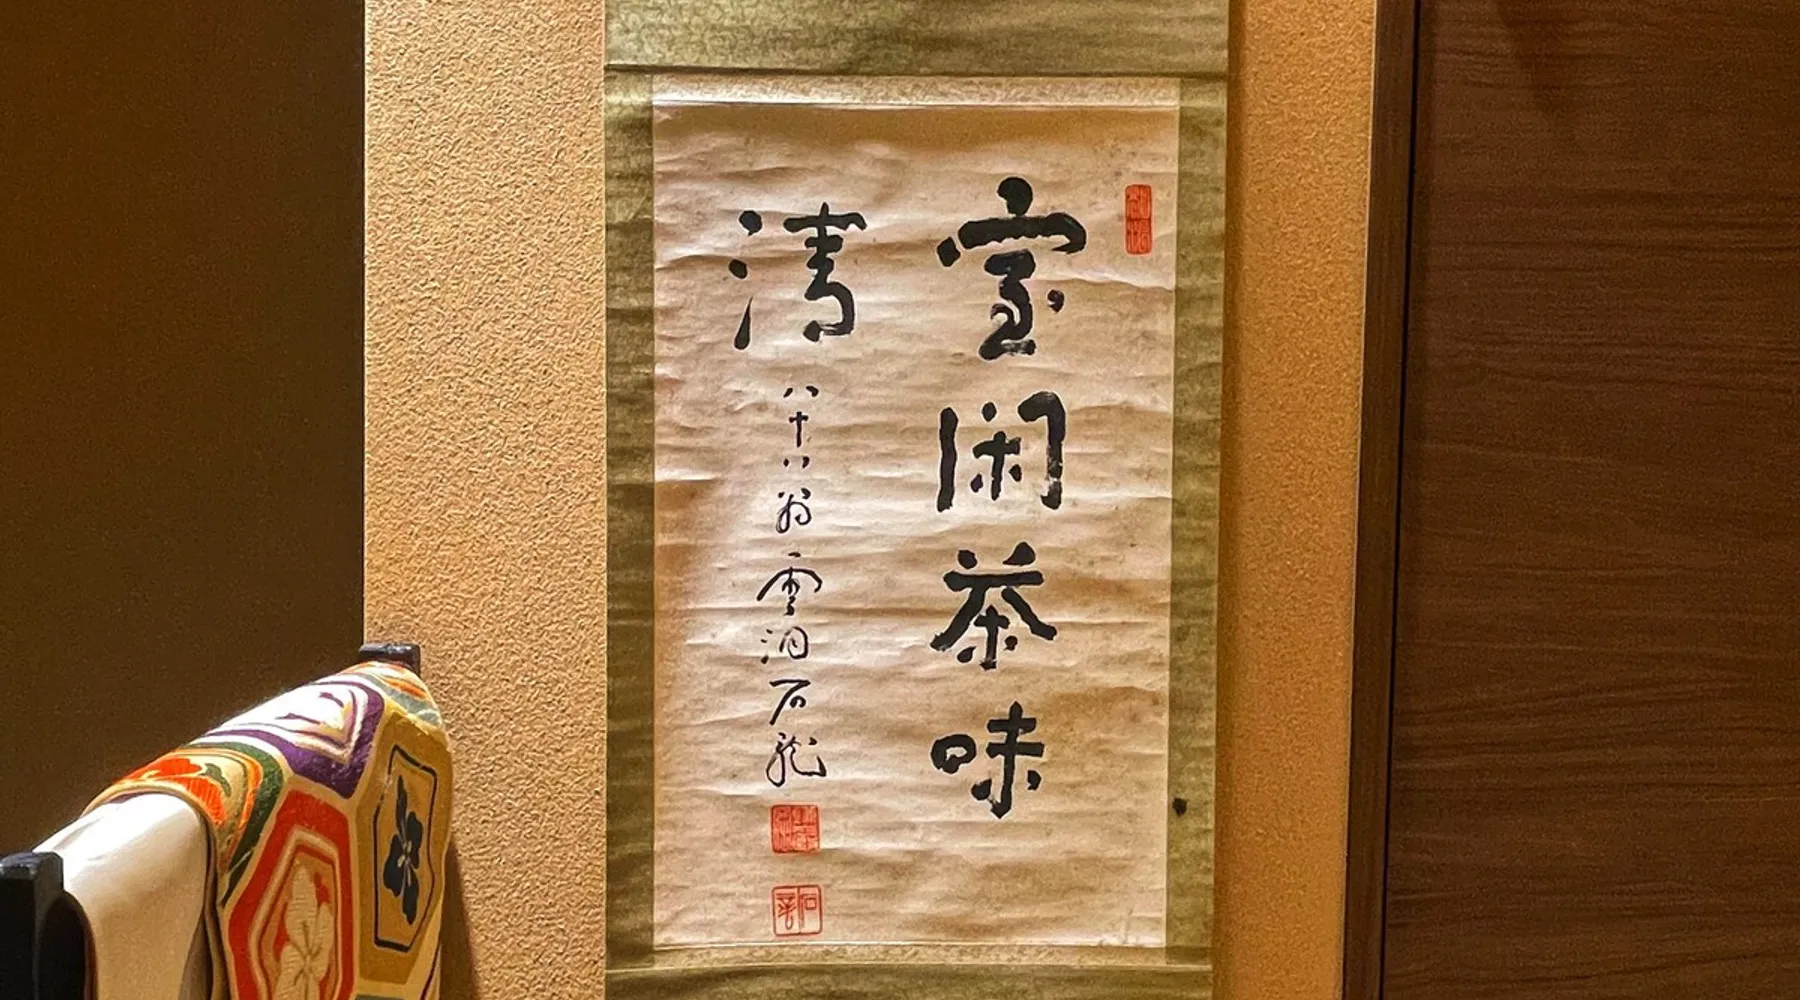 室閑茶味
清
八十八翁雲洞石龍